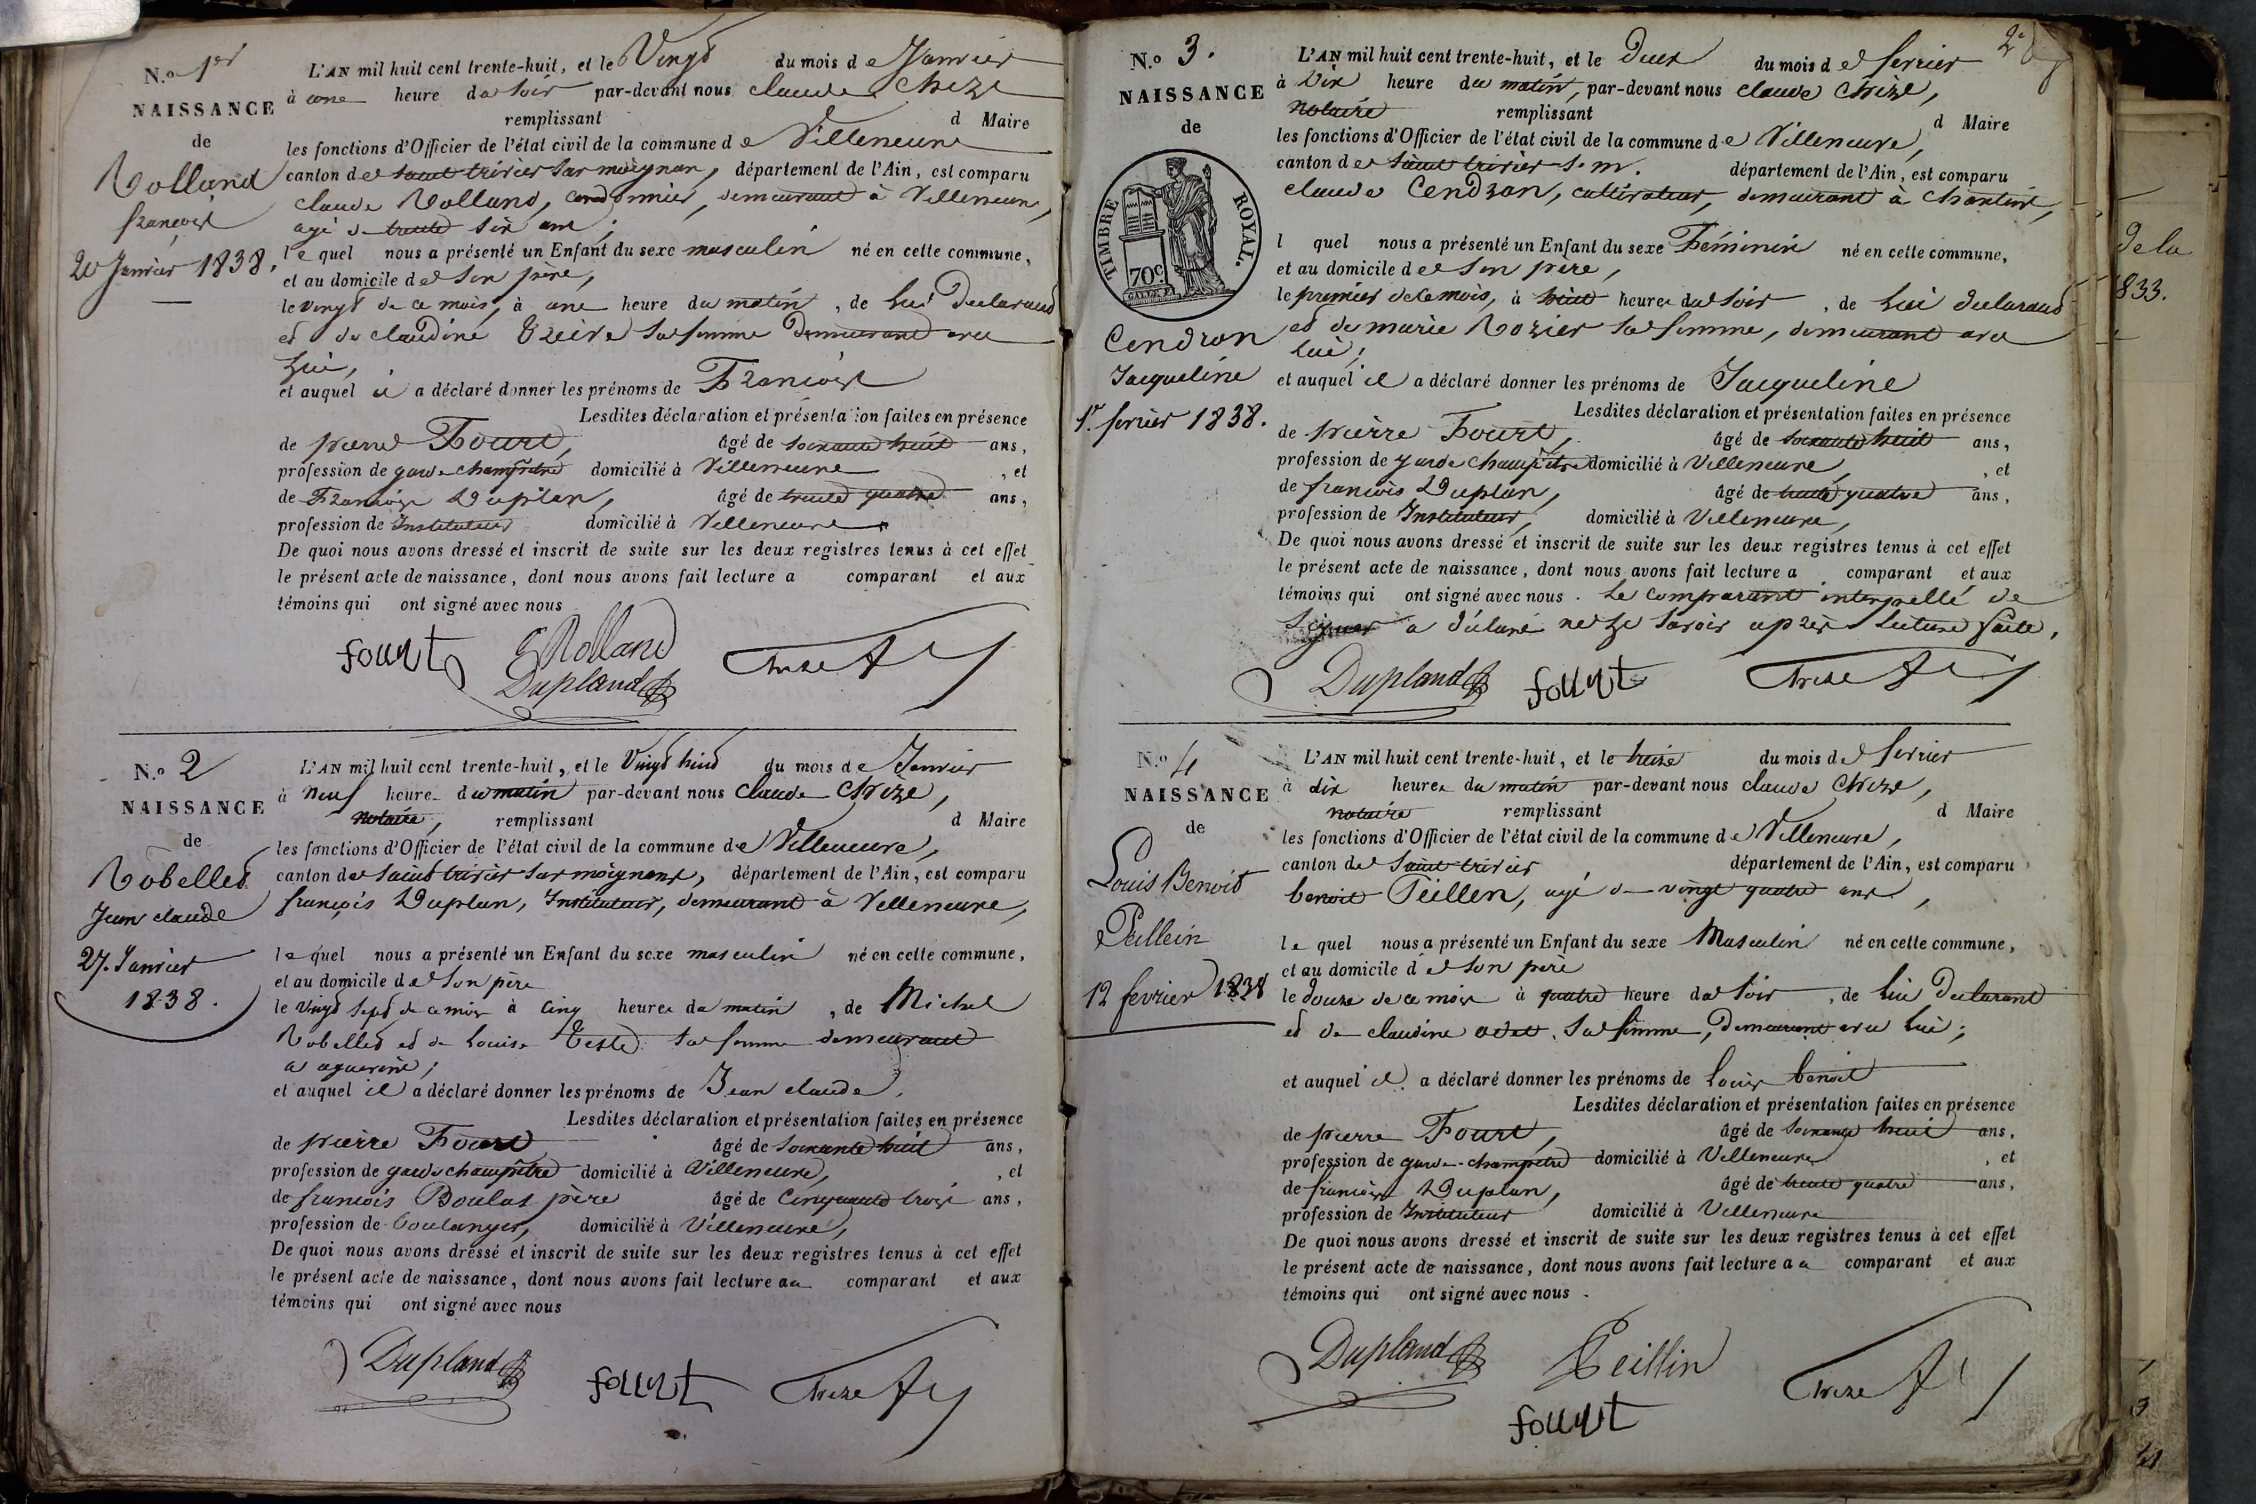 N.o 1er
NAISSANCE
de
Rolland
françois
20 Janvier 1838.
L'AN mil huit cent trente-huit, et le Vingt du mois de Janvier
à une heure du soir par-devant nous claude Chize
remplissant d Maire
les fonctions d'Officier de l'état civil de la commune de Villeneuve
canton de saint trivier sur moignan, département de l'Ain, est comparu
claude Rolland, cordonnier, demeurant à Villeneuve,
agé de trente six ans,
le quel nous a présenté un Enfant du sexe masculin né en cette commune,
et au domicile de son père,
le vingt de ce mois, à une heure du matin, de lui declarant
et de claudine sa femme demeurant avec
lui,
et auquel il a déclaré donner les prénoms de François
Lesdites déclaration et présentation faites en présence
de pierre Fourt, âgé de soixante huit ans,
profession de garde champêtre domicilié à Villeneuve, et
de François Duplan, âgé de trente quatre ans,
profession de Instituteur domicilié à Villeneuve
De quoi nous avons dressé et inscrit de suite sur les deux registres tenus à cet effet
le présent acte de naissance, dont nous avons fait lecture a comparant et aux
témoins qui ont signé avec nous
fourt Rolland Chize
Dupland
N.o 2
NAISSANCE
de
Robellet
Jean claude
27. Janvier
1838.
L'AN mil huit cent trente-huit, et le Vingt huit du mois de Janvier
à neuf heure du matin par-devant nous claude Chize,
notaire, remplissant d Maire
les fonctions d'Officier de l'état civil de la commune de Villeneuve,
canton de saint trivier sur moignans, département de l'Ain, est comparu
françois Duplan, Instituteur, demeurant à Villeneuve,
le quel nous a présenté un Enfant du sexe masculin né en cette commune,
et au domicile de son père
le vingt sept de ce mois à cinq heures du matin, de Michel
Robellet et de Louise Teste sa femme demeurant
a aguerins;
et auquel il a déclaré donner les prénoms de Jean claude,
Lesdites déclaration et présentation faites en présence
de pierre Fourt âgé de soixante huit ans,
profession de garde champêtre domicilié à Villeneuve, , et
de françois Boulas père âgé de cinquante trois ans,
profession de boulanger, domicilié à Villeneuve,
De quoi nous avons dressé et inscrit de suite sur les deux registres tenus à cet effet
le présent acte de naissance, dont nous avons fait lecture au comparant et aux
témoins qui ont signé avec nous
Dupland fourt Chize
2e
N.o 3.
NAISSANCE
de
TIMBRE ROYAL.
70c.
Cendron
Jacqueline
1er fevrier 1838.
L'AN mil huit cent trente-huit, et le Deux du mois de fevrier
à dix heure du matin, par-devant nous claude Chize,
notaire remplissant d Maire
les fonctions d'Officier de l'état civil de la commune de Villeneuve,
canton de saint trivier s. m. département de l'Ain, est comparu
claude Cendron, cultivateur, demeurant à chanteins,
l quel nous a présenté un Enfant du sexe Féminin né en cette commune,
et au domicile de son père,
le premier de ce mois, à huit heures du soir, de lui declarant
et de marie Rozier sa femme, demeurant avec
lui;
et auquel il a déclaré donner les prénoms de Jacqueline
Lesdites déclaration et présentation faites en présence
de pierre Fourt, âgé de soixante huit ans,
profession de garde champêtre domicilié à Villeneuve, , et
de françois Duplan, âgé de trente quatre ans,
profession de Instituteur, domicilié à Villeneuve,
De quoi nous avons dressé et inscrit de suite sur les deux registres tenus à cet effet
le présent acte de naissance, dont nous avons fait lecture a comparant et aux
témoins qui ont signé avec nous. Le comparant interpellé de
signer a déclaré ne le savoir après lecture faite.
Dupland fourt Chize
N.o 4
NAISSANCE
de
Louis Benoit
Peillein
12 fevrier 1838
L'AN mil huit cent trente-huit, et le treize du mois de fevrier
à dix heures du matin par-devant nous claude Chize,
notaire remplissant d Maire
les fonctions d'Officier de l'état civil de la commune de Villeneuve,
canton de saint trivier département de l'Ain, est comparu
benoit Peillen, agé de vingt quatre ans,
le quel nous a présenté un Enfant du sexe Masculin né en cette commune,
et au domicile de son père
le douze de ce mois à quatre heure du soir, de lui declarant
et de claudine odet sa femme, demeurant avec lui;
et auquel il a déclaré donner les prénoms de Louis benoit
Lesdites déclaration et présentation faites en présence
de pierre Fourt, âgé de soixante huit ans,
profession de garde-champêtre domicilié à Villeneuve , et
de françois Duplan, âgé de trente quatre ans,
profession de Instituteur domicilié à Villeneuve
De quoi nous avons dressé et inscrit de suite sur les deux registres tenus à cet effet
le présent acte de naissance, dont nous avons fait lecture au comparant et aux
témoins qui ont signé avec nous.
Dupland Peillin Chize
fourt
de la
833.